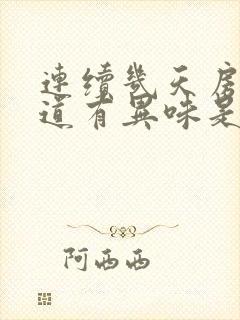 連續幾天房
道有異味是
阿西西